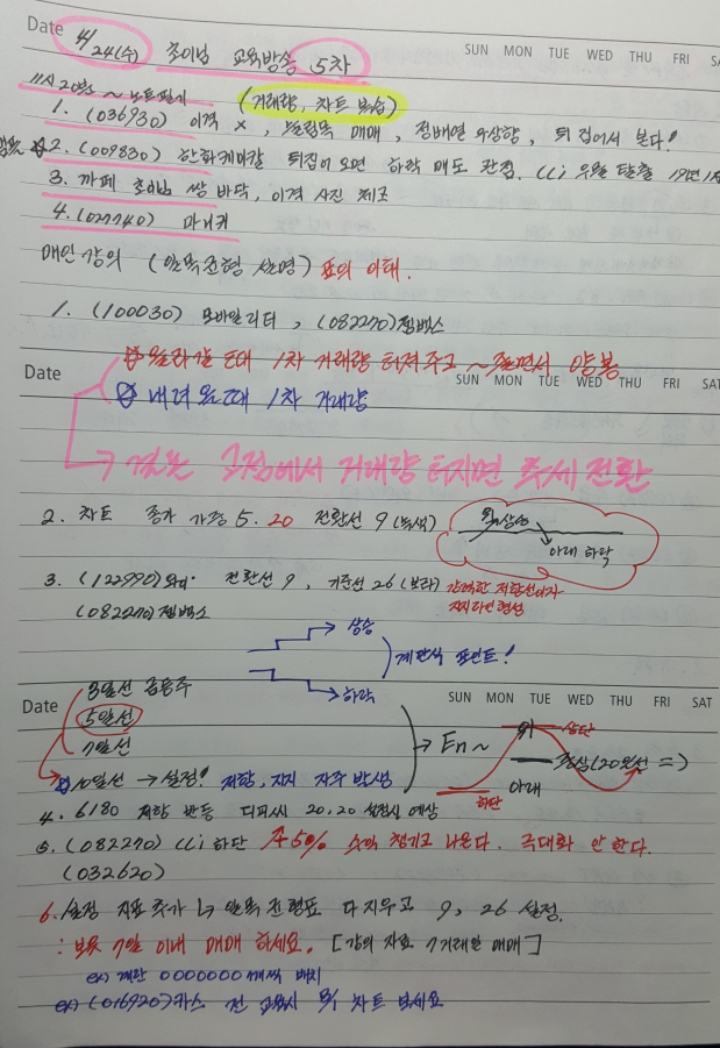 Date 4/24(수) 초이님 교육방송 5차 SUN MON TUE WED THU FRI SA
11시 20분 ~ (거래량, 차트 복습)
1. (036930) 이격 x, 눌림목 매매, 정배열 우상향, 뒤집어서 본다!
2. (009830) 한화케미칼 뒤집어 보면 하락 매도 관점. CCi 우월 탈출
3. 까페 초이님 쌍바닥, 이격 사진 참조
4. (027740) 마니커
매인강의 (일목균형 설명) 표의 이해.
1. (100030) 모바일리더, (082270)젬벡스
올라갈 때 1차 거래량 터져주고 ~ 줄면서 양봉
Date SUN MON TUE WED THU FRI SAT
내려올 때 1차 거래량
→ 결론 고점에서 거래량 터지면 추세 전환
2. 차트 종가 가격 5. 20 전환선 9 (녹색)
아래 하락
3. (122990)와이 전환선 9, 기준선 26 (보라) 강력한 저항선이자
지지라인 형성
(082270)젬벡스
→ 상승
계단식 포인트!
→ 하락
3일선 급등주
Date SUN MON TUE WED THU FRI SAT
5일선
7일선
→ En ~
위 상단
정상(20일선 =)
10일선 → 설정! 저항, 지지 자주 발생
아래
하단
4. 6180 저항 반등 디피씨 20, 20 설정시 예상
5. (082270) CCi 하단 +50% 수익 챙기고 나온다. 극대화 안 한다.
(032620)
6. 설정 지표추가 ↳ 일목균형표 다 지우고 9, 26 설정.
: 보유 7일 이내 매매 하세요. [강의 자료 7거래일 매매]
ex) 계란 0000000 7개씩 배치
ex) (016920)카스 전 교육시 차트 보세요